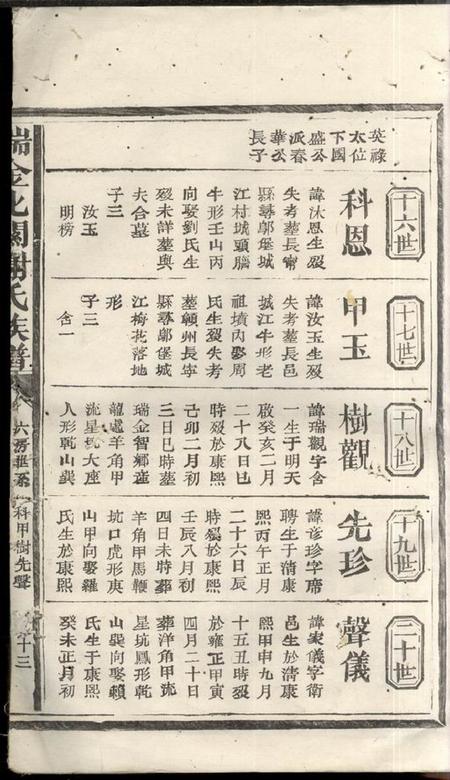 英祿
太位
下國
盛公
派春
華公
長子
十六世
科恩
諱沐恩生歿
失考葬長甯
縣尋鄔堡城
江村城頭腦
牛形壬山丙
向娶劉氏生
歿未詳墓與
夫合墓
子三
汝玉
明榜
十七世
甲玉
諱汝玉生歿
失考葬長邑
城江牛形老
祖墳內娶周
氏生歿失考
葬贛州長寧
縣尋鄔堡城
江梅花落地
形
子三
含一
十八世
樹觀
諱瑞觀字含
一生于明天
啟癸亥二月
二十八日巳
時歿於康熙
己卯二月初
三日巳時葬
瑞金智鄉產
龍處羊角甲
流星坑大座
人形乾山巽
十九世
先珍
諱彥珍字席
聘生于清康
熙丙午正月
二十六日辰
時歿於康熙
壬辰八月初
四日未時葬
羊角甲馬鞭
坑口虎形庚
山甲向娶羅
氏生於康熙
二十世
聲儀
諱家儀字衛
邑生於清康
熙甲申九月
十五丑時歿
於雍正甲寅
四月二十日
葬洋角甲流
星坑鳳形乾
山巽向娶賴
氏生于康熙
癸未正月初
瑞金北關謝氏族譜
六房華系
科甲樹先聲
十三